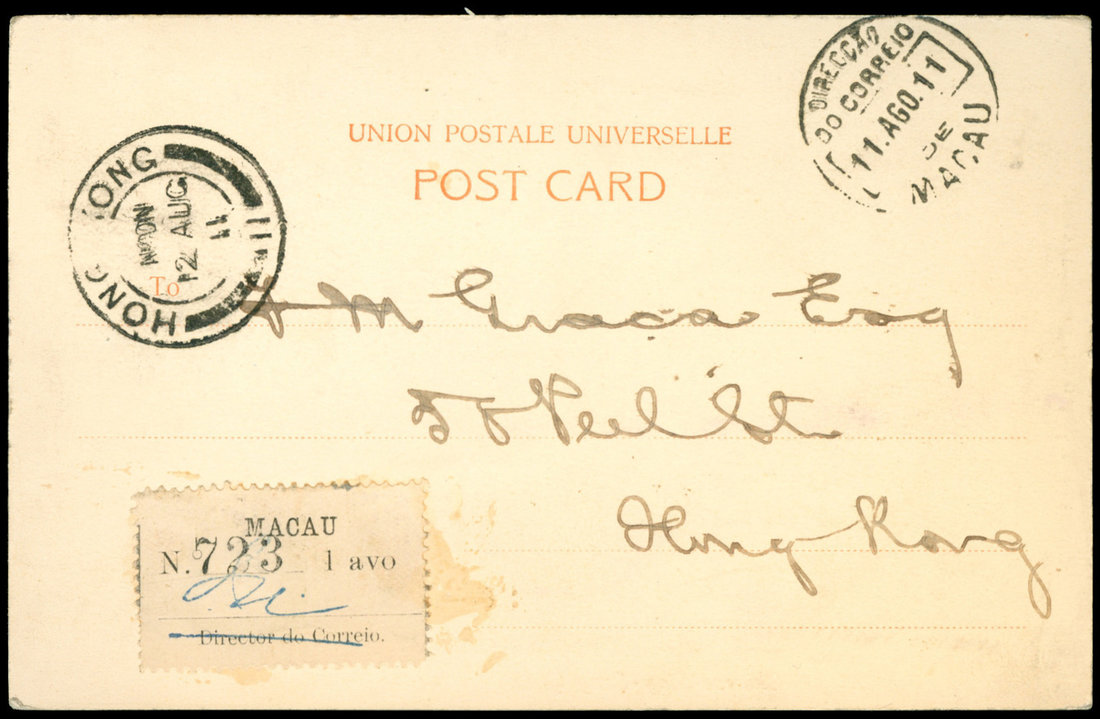 DIRECCÃO
DO CORREIO
11.AGO.11
DE
MACAU
UNION POSTALE UNIVERSELLE
POST CARD
HONG KONG
NOON
12 AUG
11
To
M Graca Esq
Peel St
Hong Kong
MACAU
N. 723 1 avo
Director do Correio.